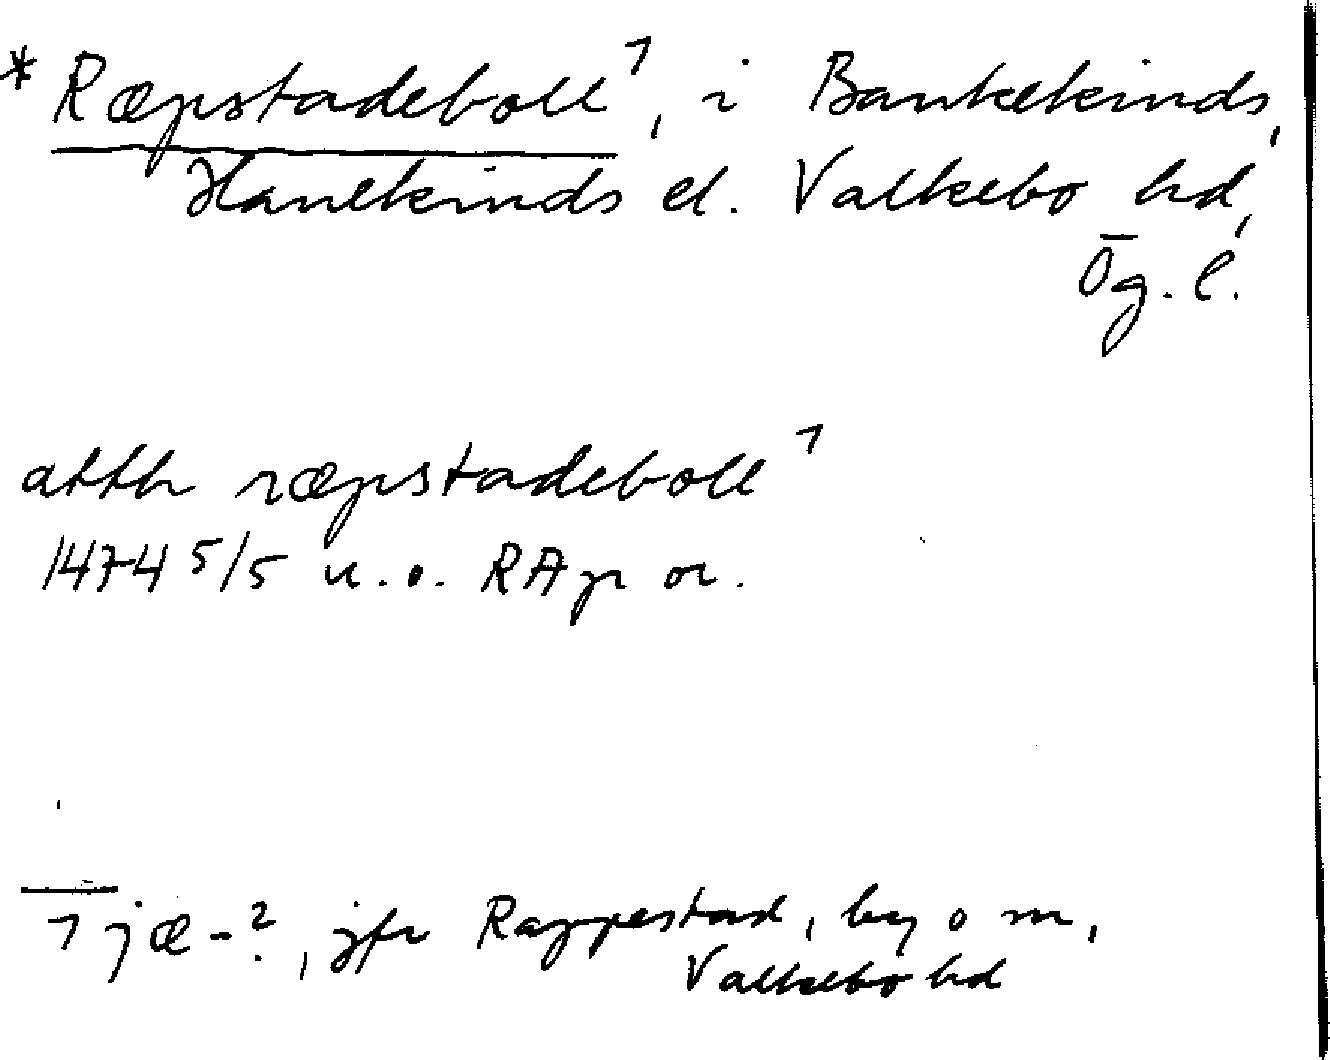 * Ræpstadeboll¹, i Bankekinds,
Hanekinds el. Valkebo hd,
Ög. l.
atth ræpstadeboll¹
1474 5/5 u.o. RAp or.
1 jæ-?, jfr Rappestad, by o sn,
Valkebo hd